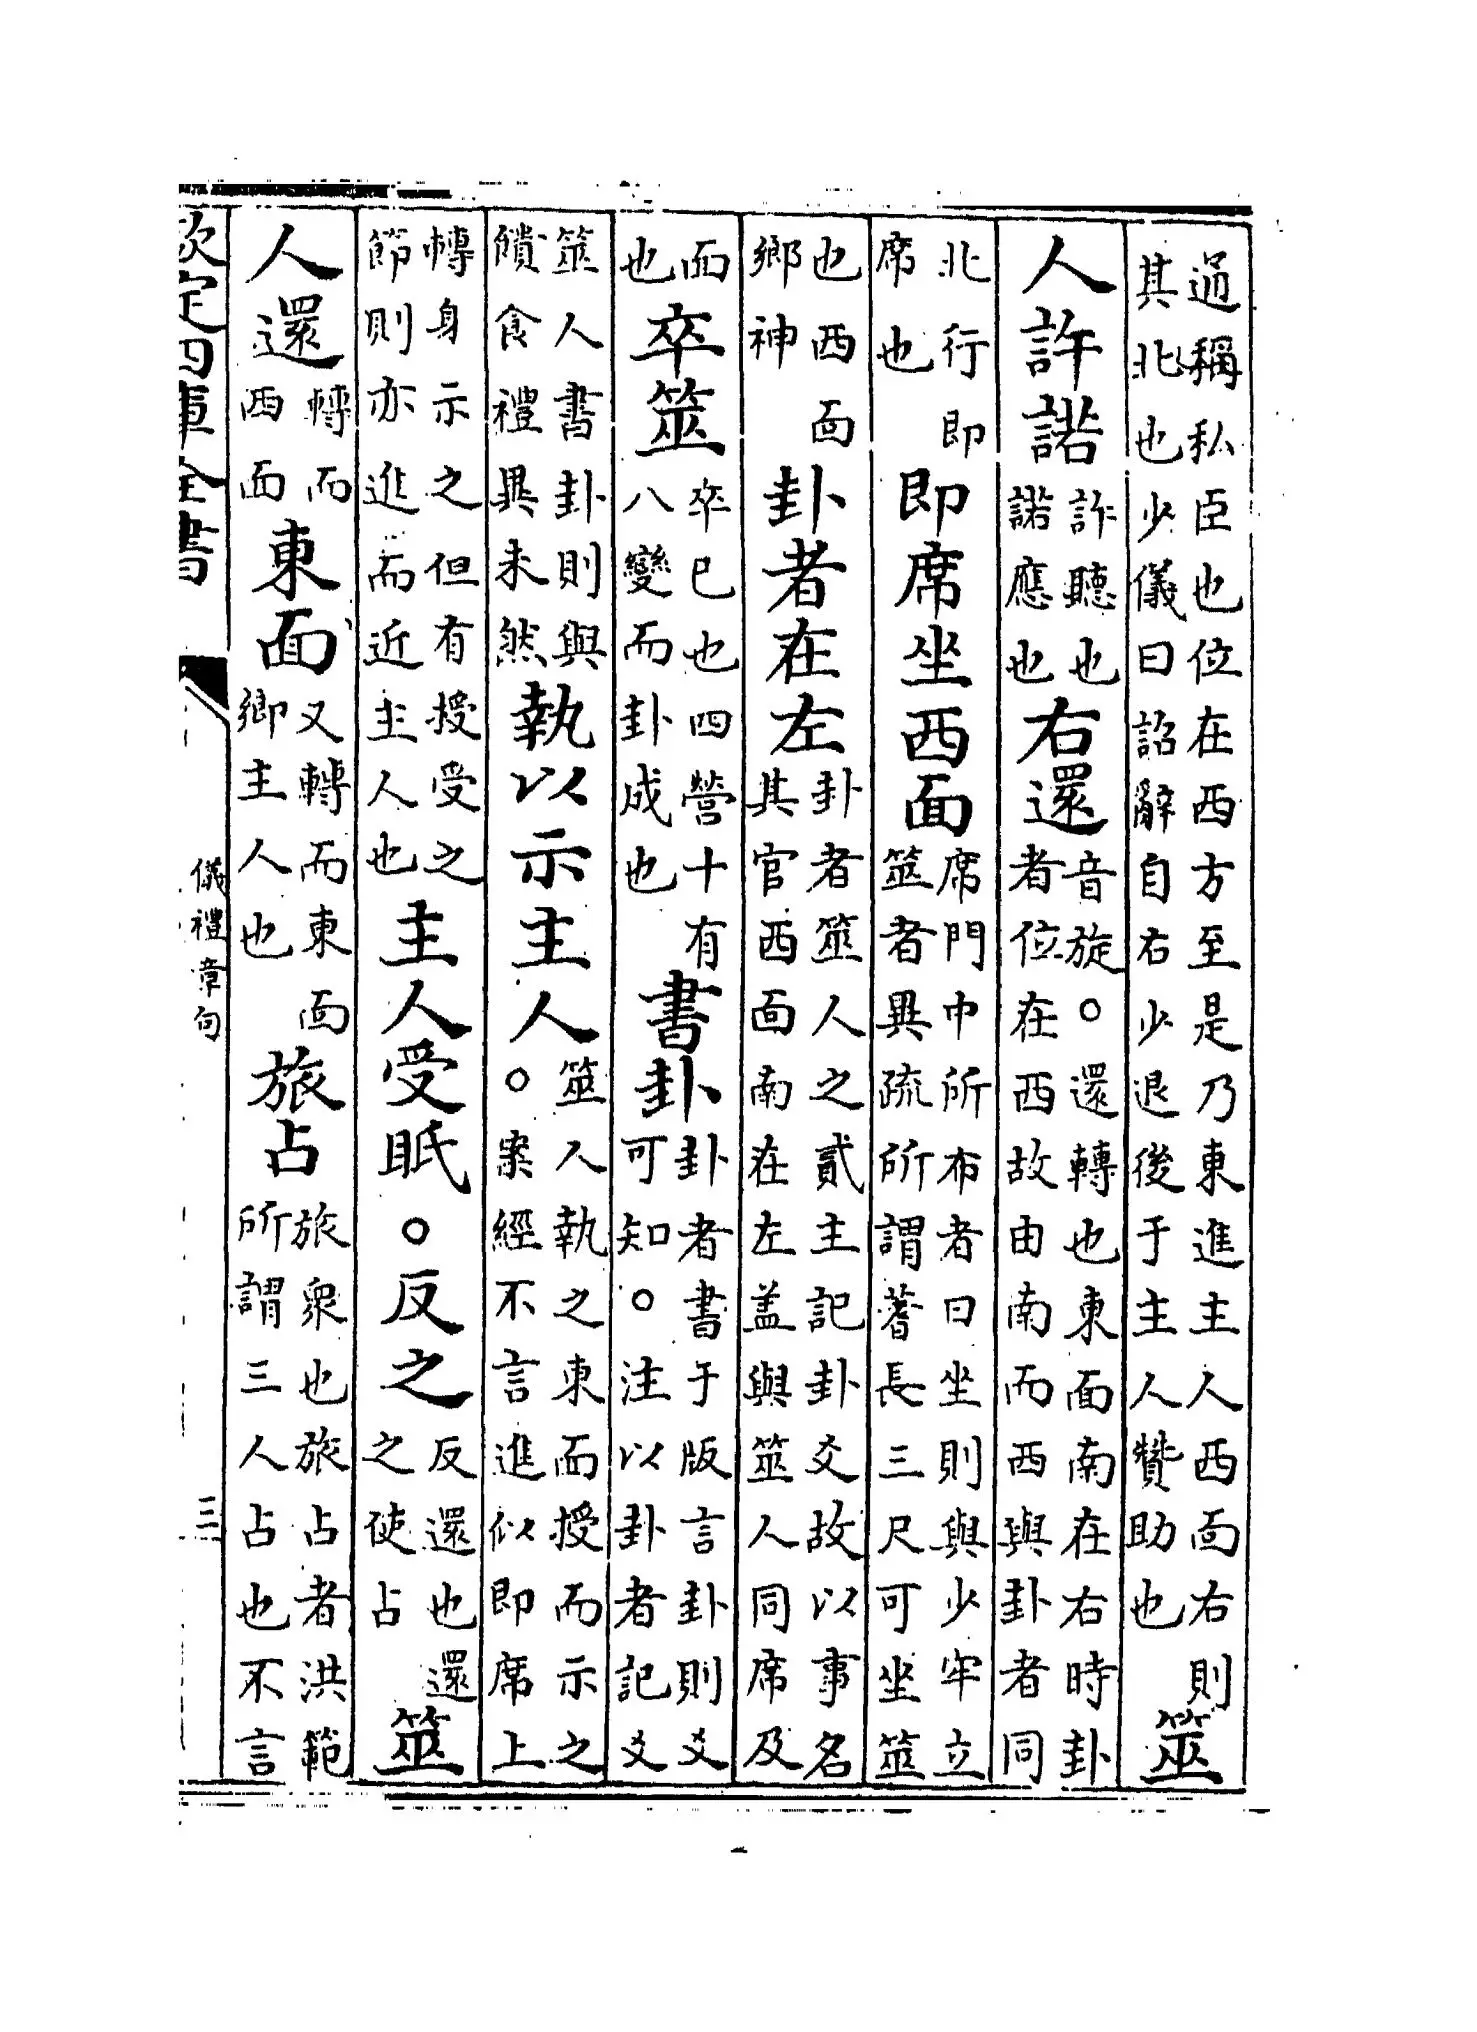 通稱私臣也位在西方至是乃東進主人西面右則其北也少儀曰詔辭自右少退後于主人贊助也筮
人許諾許聽也諾應也右還音旋。還轉也東面南在右時卦者位在西故由南而西與卦者同
北行即席也即席坐西面席門中所布者曰坐則與少牢立筮者異疏所謂蓍長三尺可坐筮
也西面鄉神卦者在左卦者筮人之貳主記卦爻故以事名其官西面南在左盖與筮人同席及
面也卒筮卒已也四營十有八變而卦成也書卦卦者書于版言卦則爻可知。注以卦者記爻
筮人書卦則與饋食禮異未然執以示主人筮人執之東面授而示之。案經不言進似即席上
轉身示之但有授受之節則亦進而近主人也主人受眡。反之反還也還之使占筮
人還轉而西面東面又轉而東面鄉主人也旅占旅衆也旅占者洪範所謂三人占也不言
欽定四庫全書
儀禮章句
三